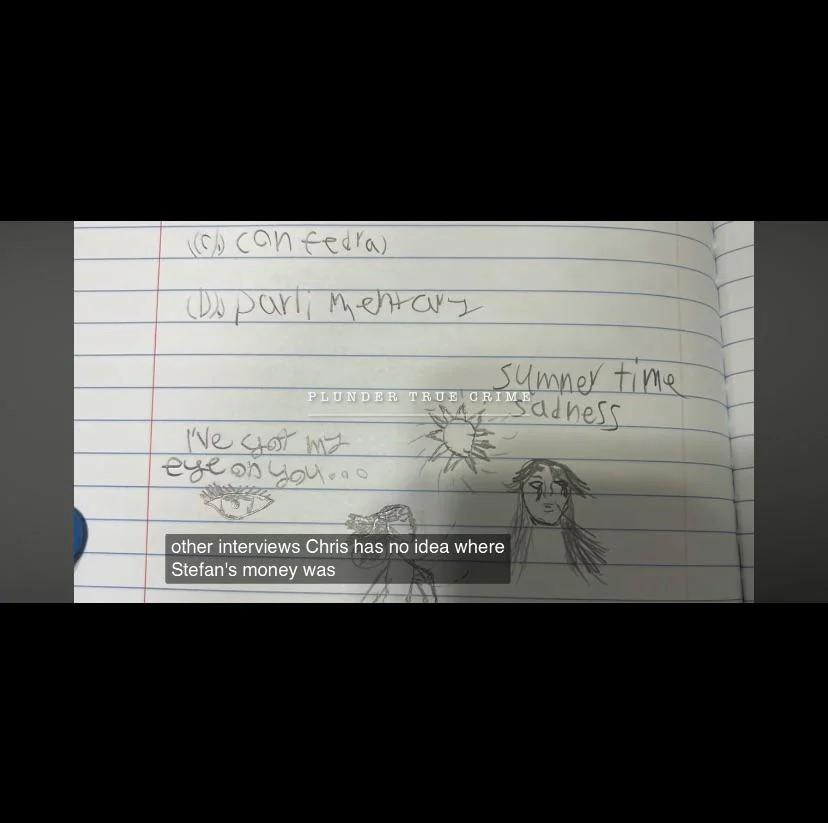 (c) confedral
(D) parlimentary
summer time
PLUNDER TRUE CRIME
sadness
I've got my
eye on you...
other interviews Chris has no idea where
Stefan's money was